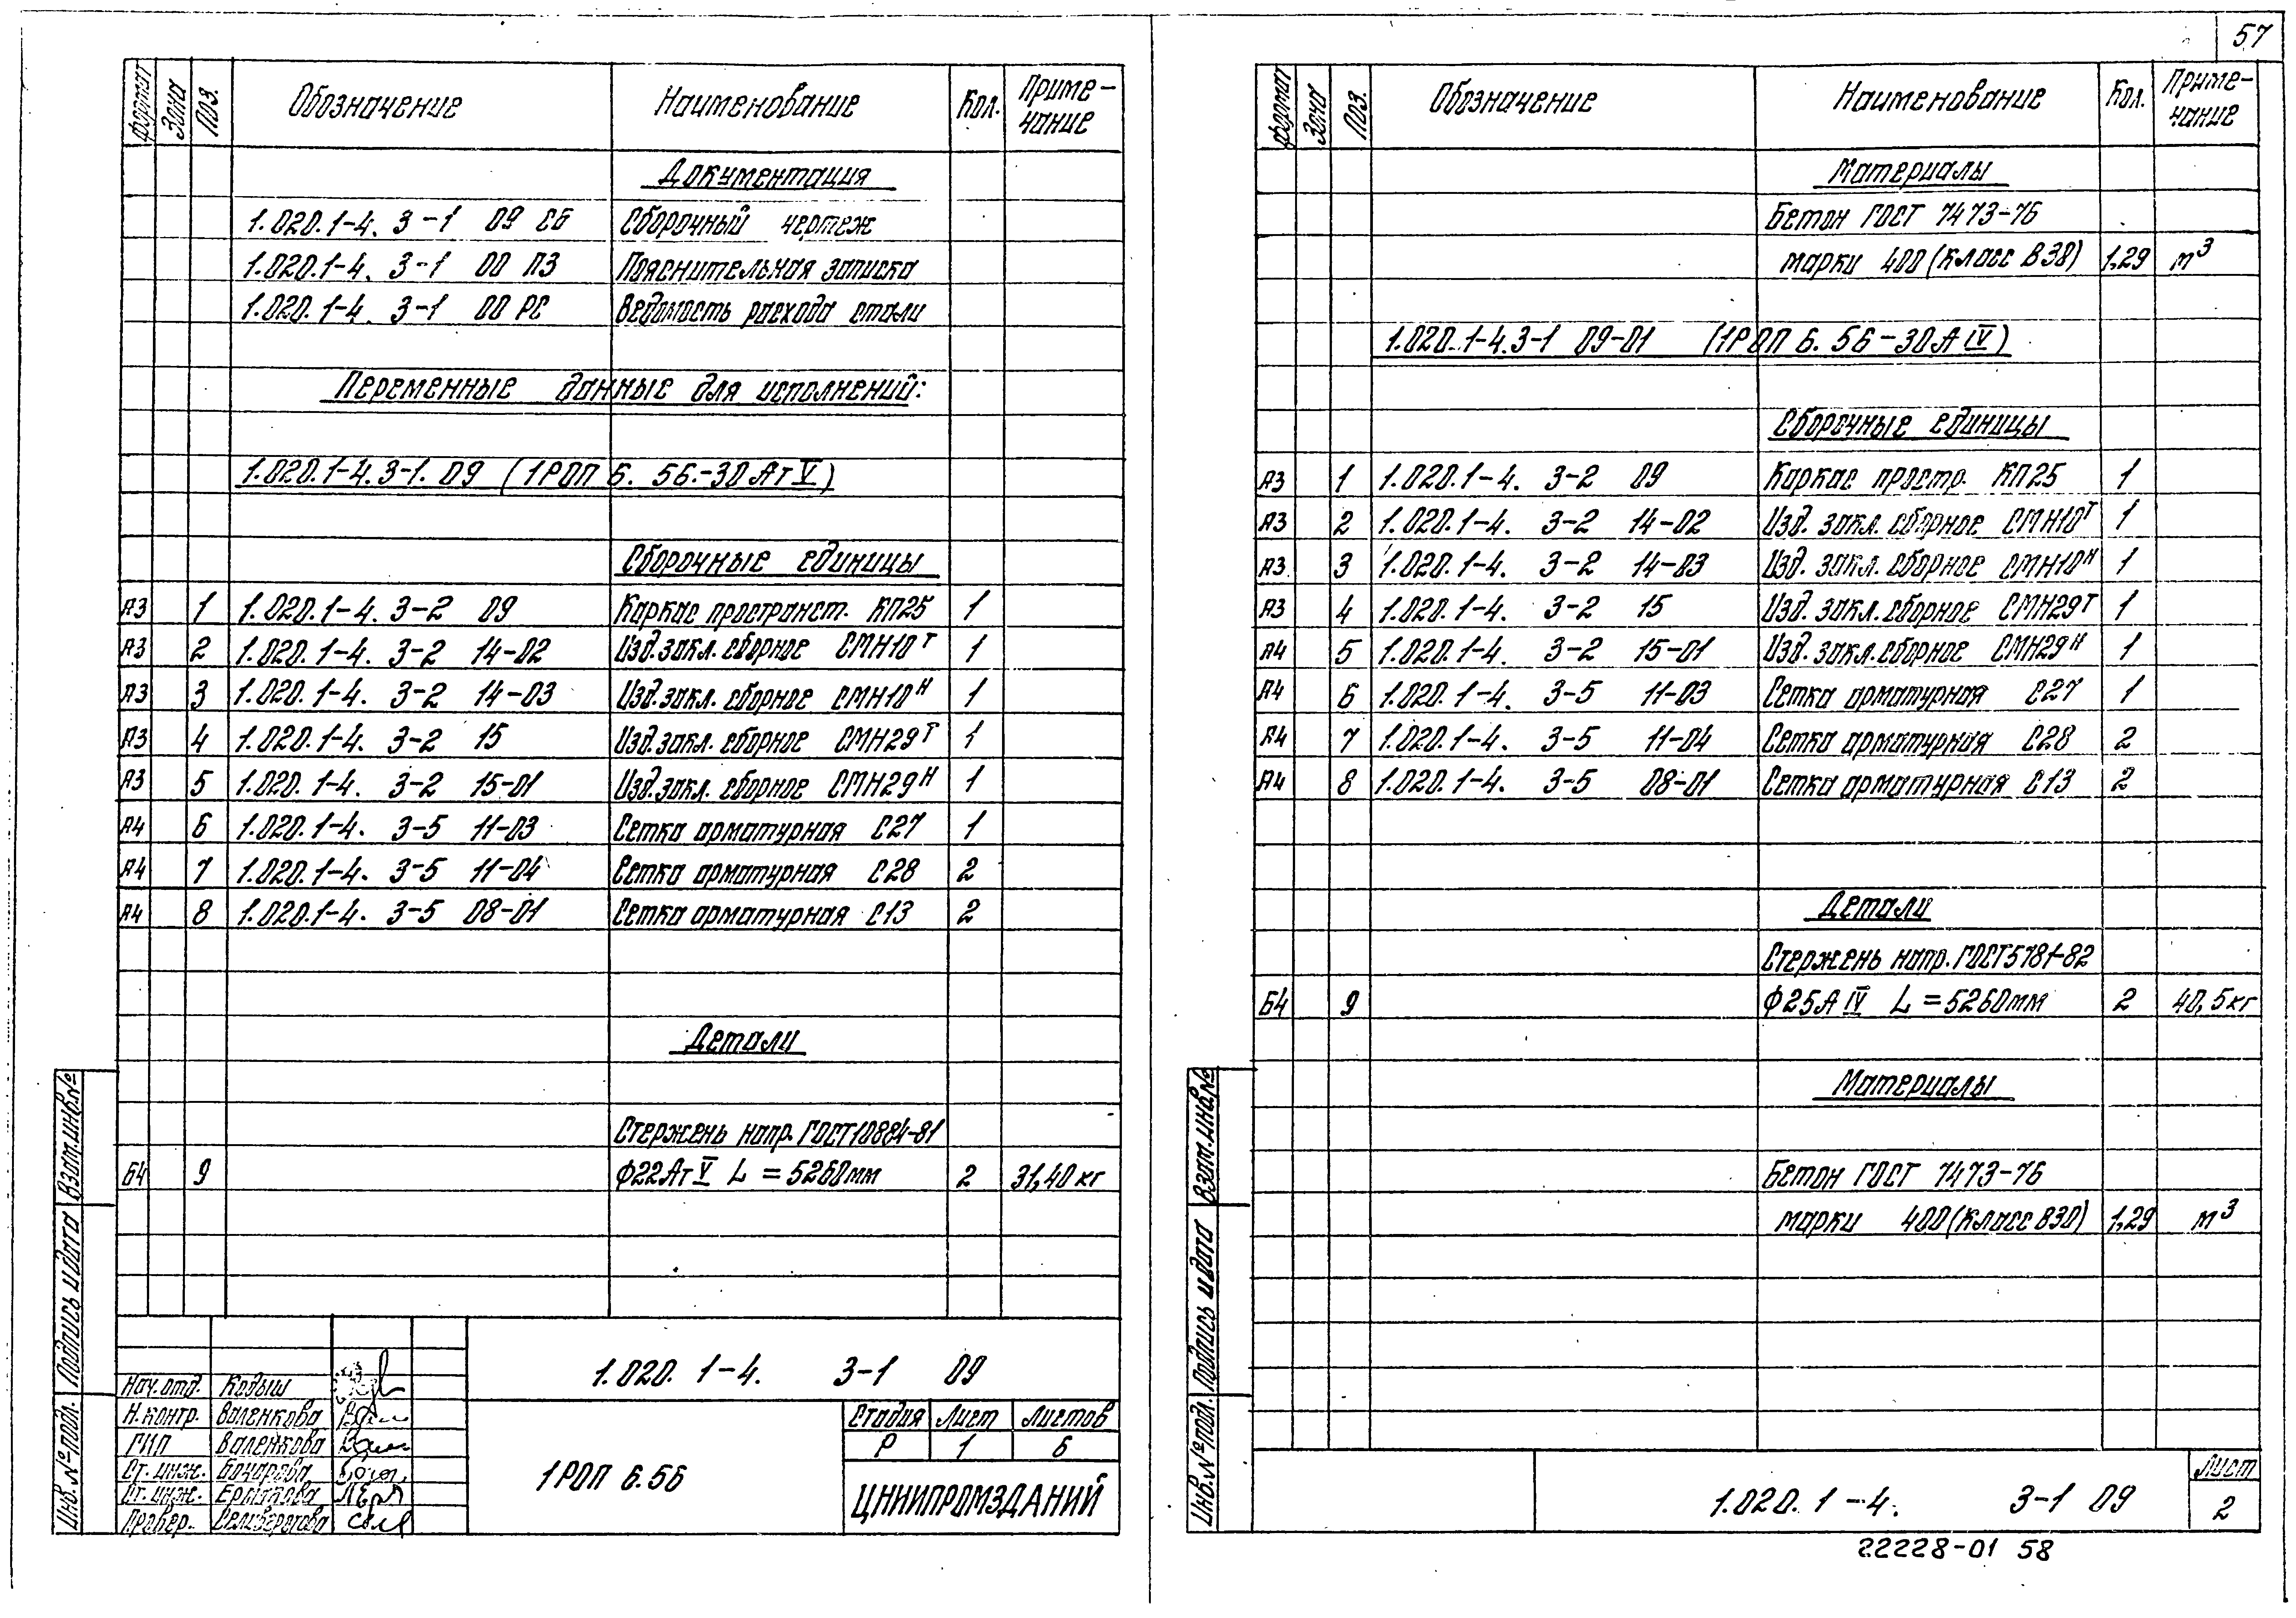 57
Формат Зона Поз. Обозначение Наименование Кол. Приме-
чание
Документация
1.020.1-4. 3-1 09 СБ Сборочный чертеж
1.020.1-4. 3-1 00 ПЗ Пояснительная записка
1.020.1-4. 3-1 00 РС Ведомость расхода стали
Переменные данные для исполнений:
1.020.1-4.3-1. 09 (1РОП 6. 56.-30 Ат V)
Сборочные единицы
А3 1 1.020.1-4. 3-2 09 Каркас пространст. КП25 1
А3 2 1.020.1-4. 3-2 14-02 Изд. закл. сборное СМН10Т 1
А3 3 1.020.1-4. 3-2 14-03 Изд. закл. сборное СМН10Н 1
А3 4 1.020.1-4. 3-2 15 Изд. закл. сборное СМН29Т 1
А3 5 1.020.1-4. 3-2 15-01 Изд. закл. сборное СМН29Н 1
А4 6 1.020.1-4. 3-5 11-03 Сетка арматурная С27 1
А4 7 1.020.1-4. 3-5 11-04 Сетка арматурная С28 2
А4 8 1.020.1-4. 3-5 08-01 Сетка арматурная С13 2
Детали
Стержень напр. ГОСТ10884-81
Б4 9 Ф22Ат V L = 5260мм 2 31,40 кг
Инв.№ подл. Подпись и дата Взам.инв.№
Нач. отд. Кодыш
Н. контр. Валенкова
ГИП Валенкова
Ст. инж. Бочарова
Ст. инж. Ермакова
Провер. Селиверстова
1.020. 1-4. 3-1 09
1РОП 6.56
Стадия Лист Листов
Р 1 6
ЦНИИПРОМЗДАНИЙ
Формат Зона Поз. Обозначение Наименование Кол. Приме-
чание
Материалы
Бетон ГОСТ 7473-76
марки 400 (класс В30) 1,29 м³
1.020.1-4.3-1 09-01 (1РОП 6. 56-30А IV)
Сборочные единицы
А3 1 1.020.1-4. 3-2 09 Каркас простр. КП25 1
А3 2 1.020.1-4. 3-2 14-02 Изд. закл. сборное СМН10Т 1
А3 3 1.020.1-4. 3-2 14-03 Изд. закл. сборное СМН10Н 1
А3 4 1.020.1-4. 3-2 15 Изд. закл. сборное СМН29Т 1
А4 5 1.020.1-4. 3-2 15-01 Изд. закл. сборное СМН29Н 1
А4 6 1.020.1-4. 3-5 11-03 Сетка арматурная С27 1
А4 7 1.020.1-4. 3-5 11-04 Сетка арматурная С28 2
А4 8 1.020.1-4. 3-5 08-01 Сетка арматурная С13 2
Детали
Стержень напр. ГОСТ5781-82
Б4 9 Ф25А IV L = 5260мм 2 40,5кг
Материалы
Бетон ГОСТ 7473-76
марки 400 (класс В30) 1,29 м³
Инв.№ подл. Подпись и дата Взам.инв.№
1.020. 1-4. 3-1 09
Лист
2
22228-01 58